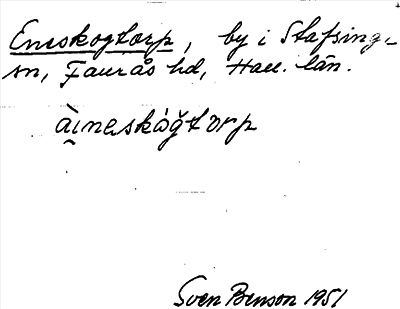 Eneskogtorp, by i Stafsinge
sn, Faurås hd, Hall. län.
àı̯neskòğtorp
Sven Benson 1951